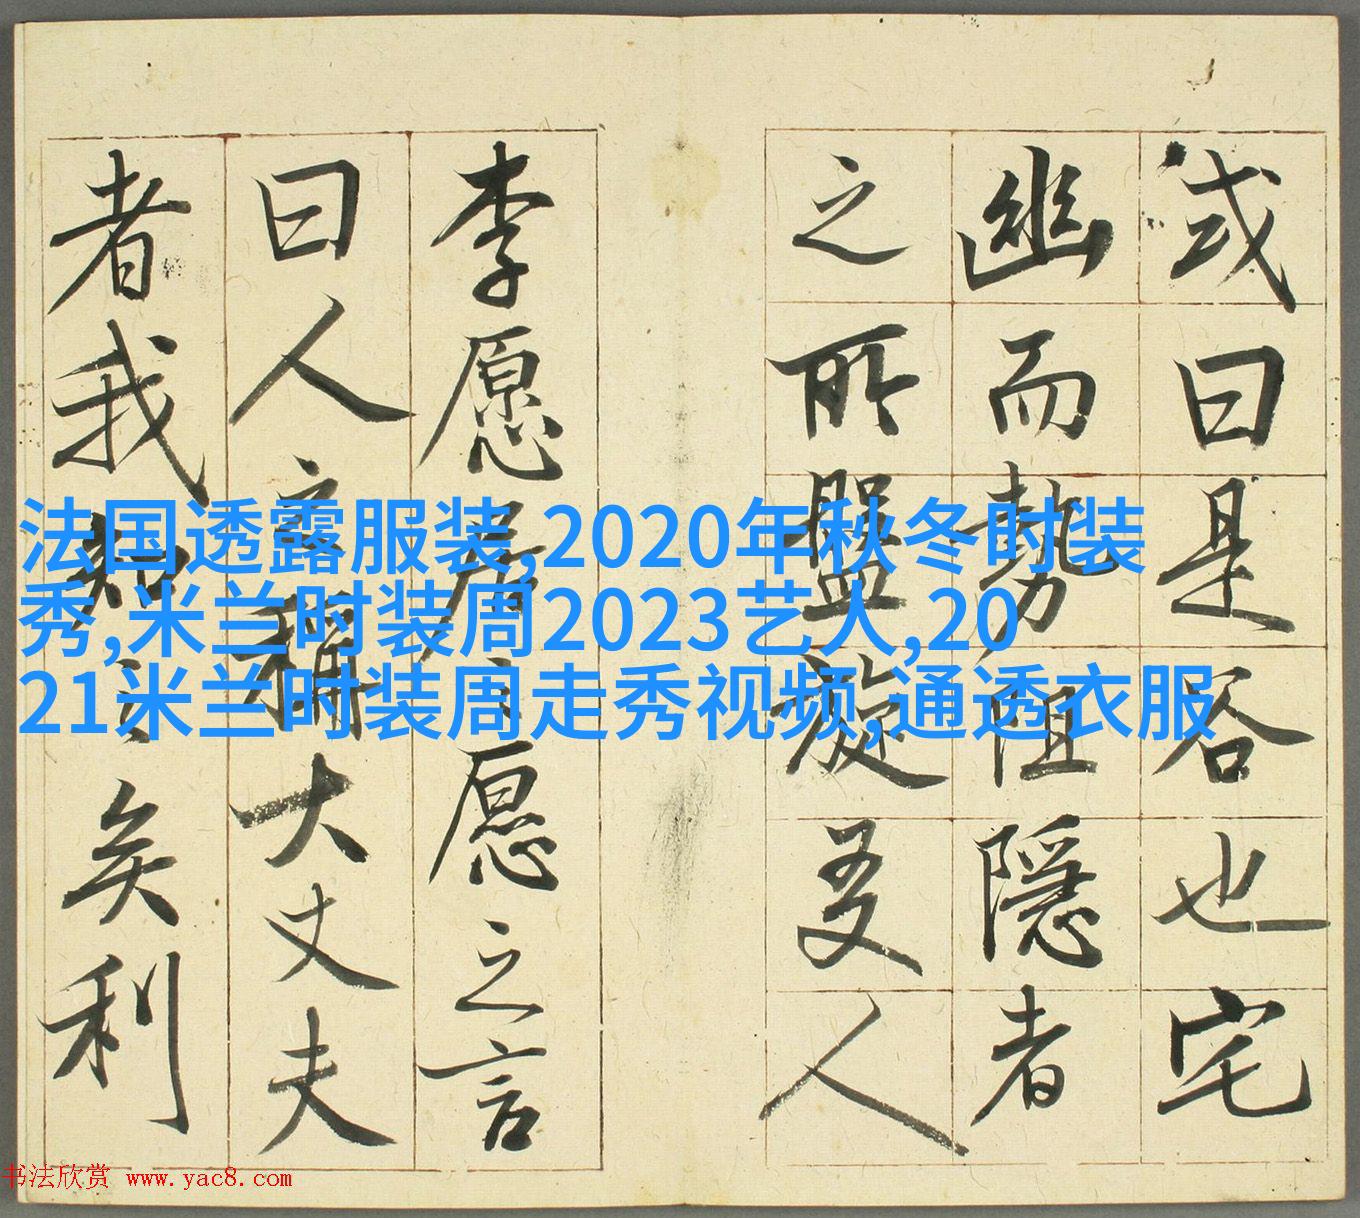 或曰是谷也宅
幽而勢阻隱者
之所盤旋友人
李愿居之愿之言
曰人之稱大丈夫
者我知之矣利
法国透露服装,2020年秋冬时装
秀,米兰时装周2023艺人,20
21米兰时装周走秀视频,通透衣服
书法欣赏 www.yac8.com